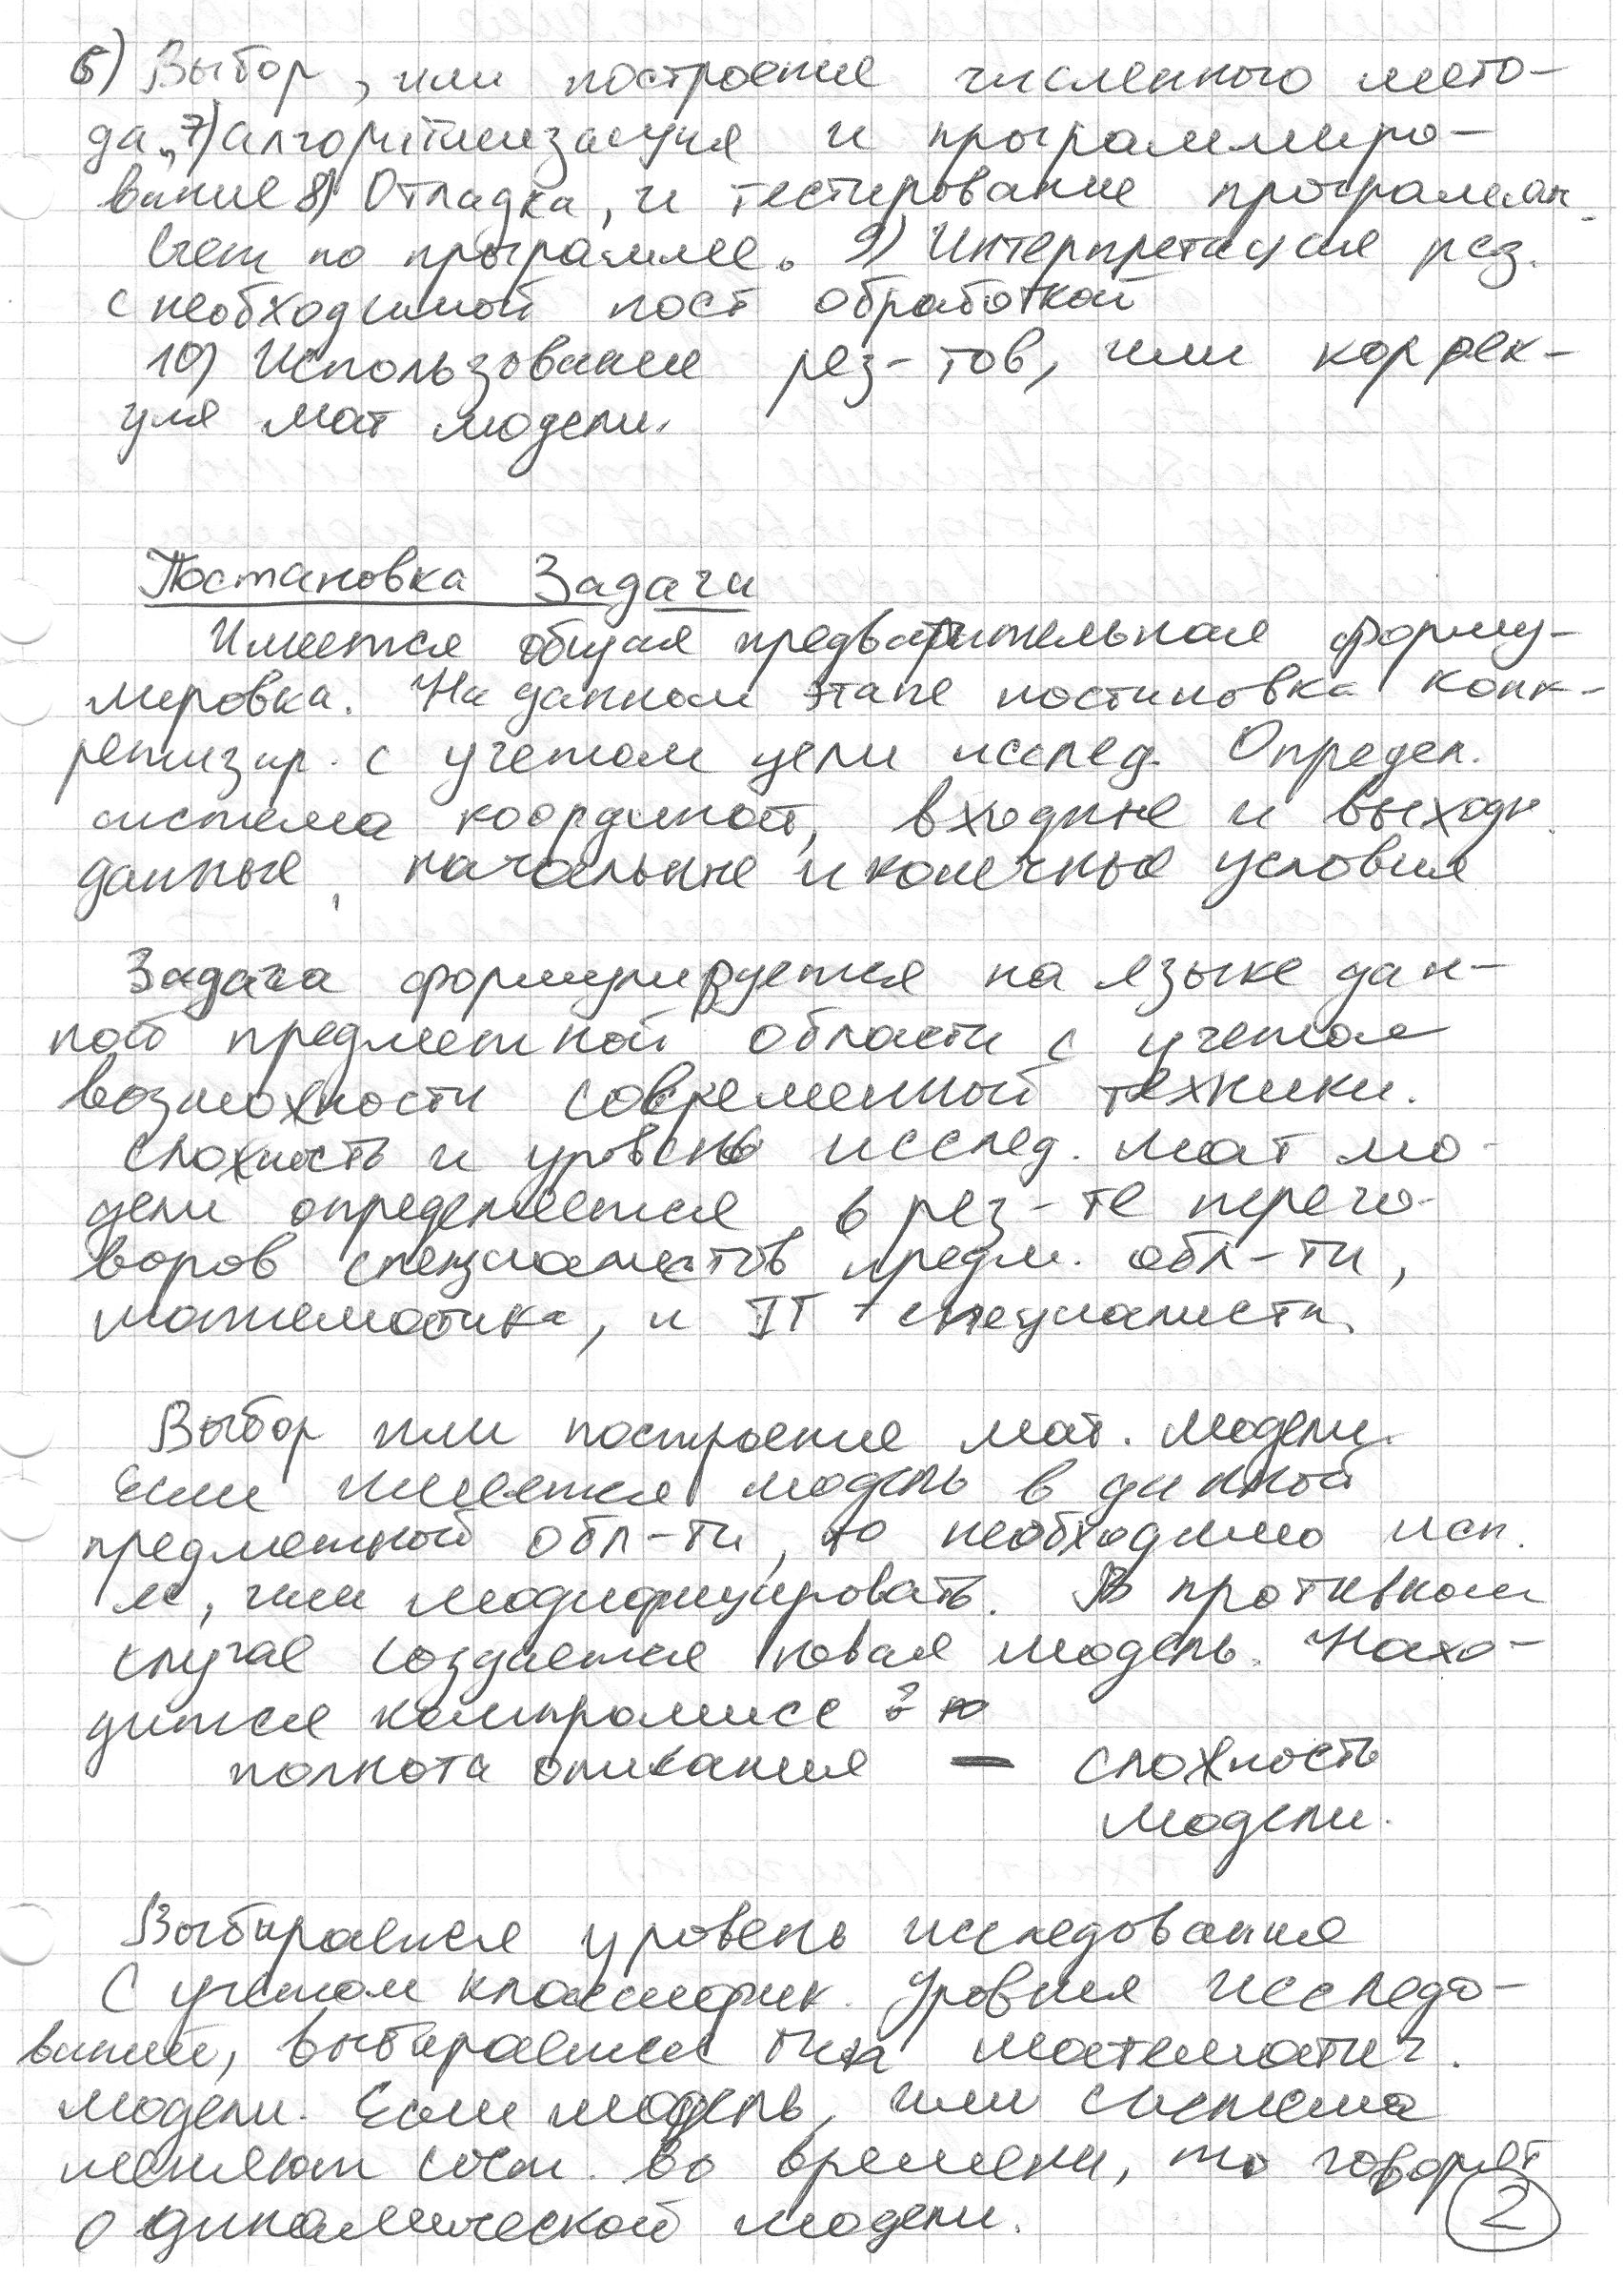 6) Выбор, или построение численного мето-
да, 7) алгоритмизация и программиро-
вание 8) Отладка, и тестирование программы.
Счет по программе. 9) Интерпретация рез.
с необходимой пост обработкой
10) Использование рез-тов, или коррек-
ция мат модели.
Постановка Задачи
Имеется общая предварительная форму-
лировка. На данном этапе постановка конк-
ретизир. с учетом цели исслед. Определ.
система координат, входные и выходн.
данные, начальные и конечные условия
Задача формулируется на языке дан-
ной предметной области с учетом
возможности современной техники.
Сложность и уровень исслед. мат мо-
дели определяется в рез-те перего-
воров специалистов предм. обл-ти,
математика, и IT - специалиста.
Выбор или построение мат. модели.
Если имеется модель в данной
предметной обл-ти, то необходимо исп.
ее, или модифицировать. В противном
случае создается новая модель. Нахо-
дится компромисс
полнота описания — сложность
модели.
Выбирается уровень исследования
С учетом классифик. уровня исследо-
ваний, выбирается тип математич.
модели. Если модель, или система
меняют сост. во времени, то говорят
о динамической модели.
2